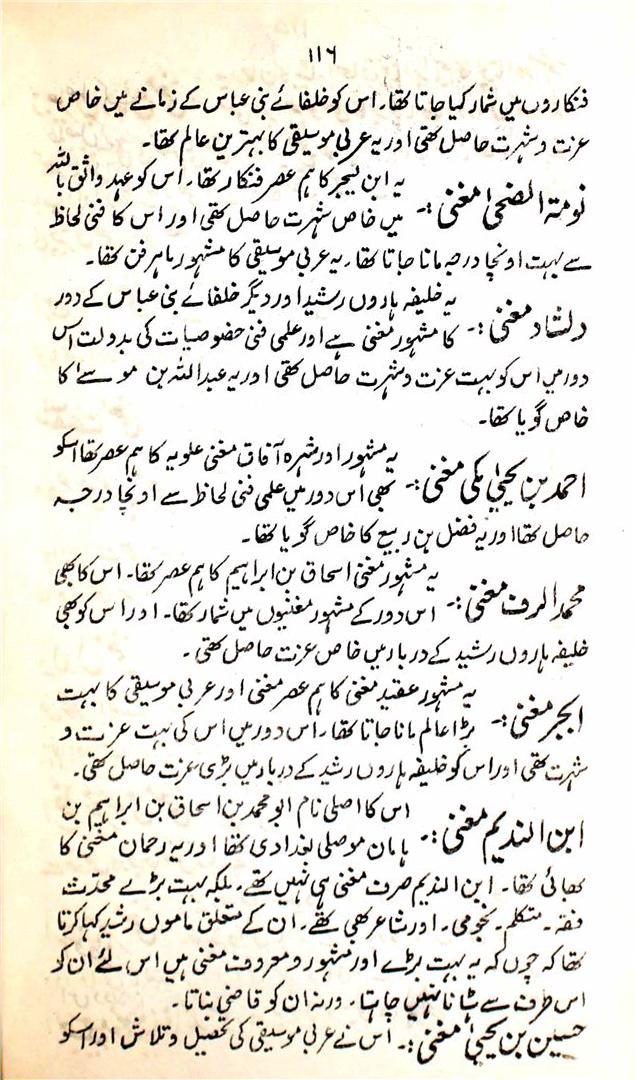 ۱۱٦
فنکاروں میں شمار کیا جاتا تھا۔ اس کو خلفائے بنی عباس کے زمانے میں خاص
عزت و شہرت حاصل تھی اور یہ عربی موسیقی کا بہترین عالم تھا۔
نومۃ الضحیٰ مغنی:۔ یہ ابن لیجر کا ہم عصر فنکار تھا۔ اس کو عہد واثق باللہ
میں خاص شہرت حاصل تھی اور اس کا فنی لحاظ
سے بہت اونچا درجہ مانا جاتا تھا۔ یہ عربی موسیقی کا مشہور ماہر فن تھا۔
دلشاد مغنی:۔ یہ خلیفہ ہاروں رشید اور دیگر خلفائے بنی عباس کے دور
کا مشہور مغنی ہے اور علمی فنی خصوصیات کی بدولت اس
دور میں اس کو بہت عزت و شہرت حاصل تھی اور یہ عبداللہ بن موسےٰ کا
خاص گویا تھا۔
احمد بن یحیٰی مکی مغنی:۔ یہ مشہور اور شہرہ آفاق مغنی علویہ کا ہم عصر تھا اسکو
بھی اس دور میں علمی فنی لحاظ سے اونچا درجہ
حاصل تھا اور یہ فضل بن ربیع کا خاص گویا تھا۔
محمد الرف مغنی:۔ یہ مشہور مغنی اسحاق بن ابراہیم کا ہم عصر تھا۔ اس کا بھی
اس دور کے مشہور مغنیوں میں شمار تھا۔ اور اس کو بھی
خلیفہ ہاروں رشید کے دربار میں خاص عزت حاصل تھی۔
ابجر مغنی:۔ یہ مشہور عقید مغنی کا ہم عصر مغنی اور عربی موسیقی کا بہت
بڑا عالم مانا جاتا تھا۔ اس دور میں اس کی بہت عزت و
شہرت تھی اور اس کو خلیفہ ہاروں رشید کے دربار میں بڑی عزت حاصل تھی۔
ابن الندیم مغنی:۔ اس کا اصلی نام ابو محمد بن اسحاق بن ابراہیم بن
ہامان موصلی بغدادی تھا اور یہ رحمان مغنی کا
بھائی تھا۔ ابن الندیم صرف مغنی ہی نہیں تھے۔ بلکہ بہت بڑے محدث
فقہ۔ متکلم۔ نجومی۔ اور شاعر بھی تھے۔ ان کے متعلق ماموں رشید کہا کرتا
تھا کہ چوں کہ یہ بہت بڑے اور مشہور و معروف مغنی ہیں اس لئے ان کو
اس طرف سے ہٹانا نہیں چاہتا۔ ورنہ ان کو قاضی بناتا۔
حسین بن یحیٰی مغنی:۔ اس نے عربی موسیقی کی تحصیل و تلاش اور اسکو